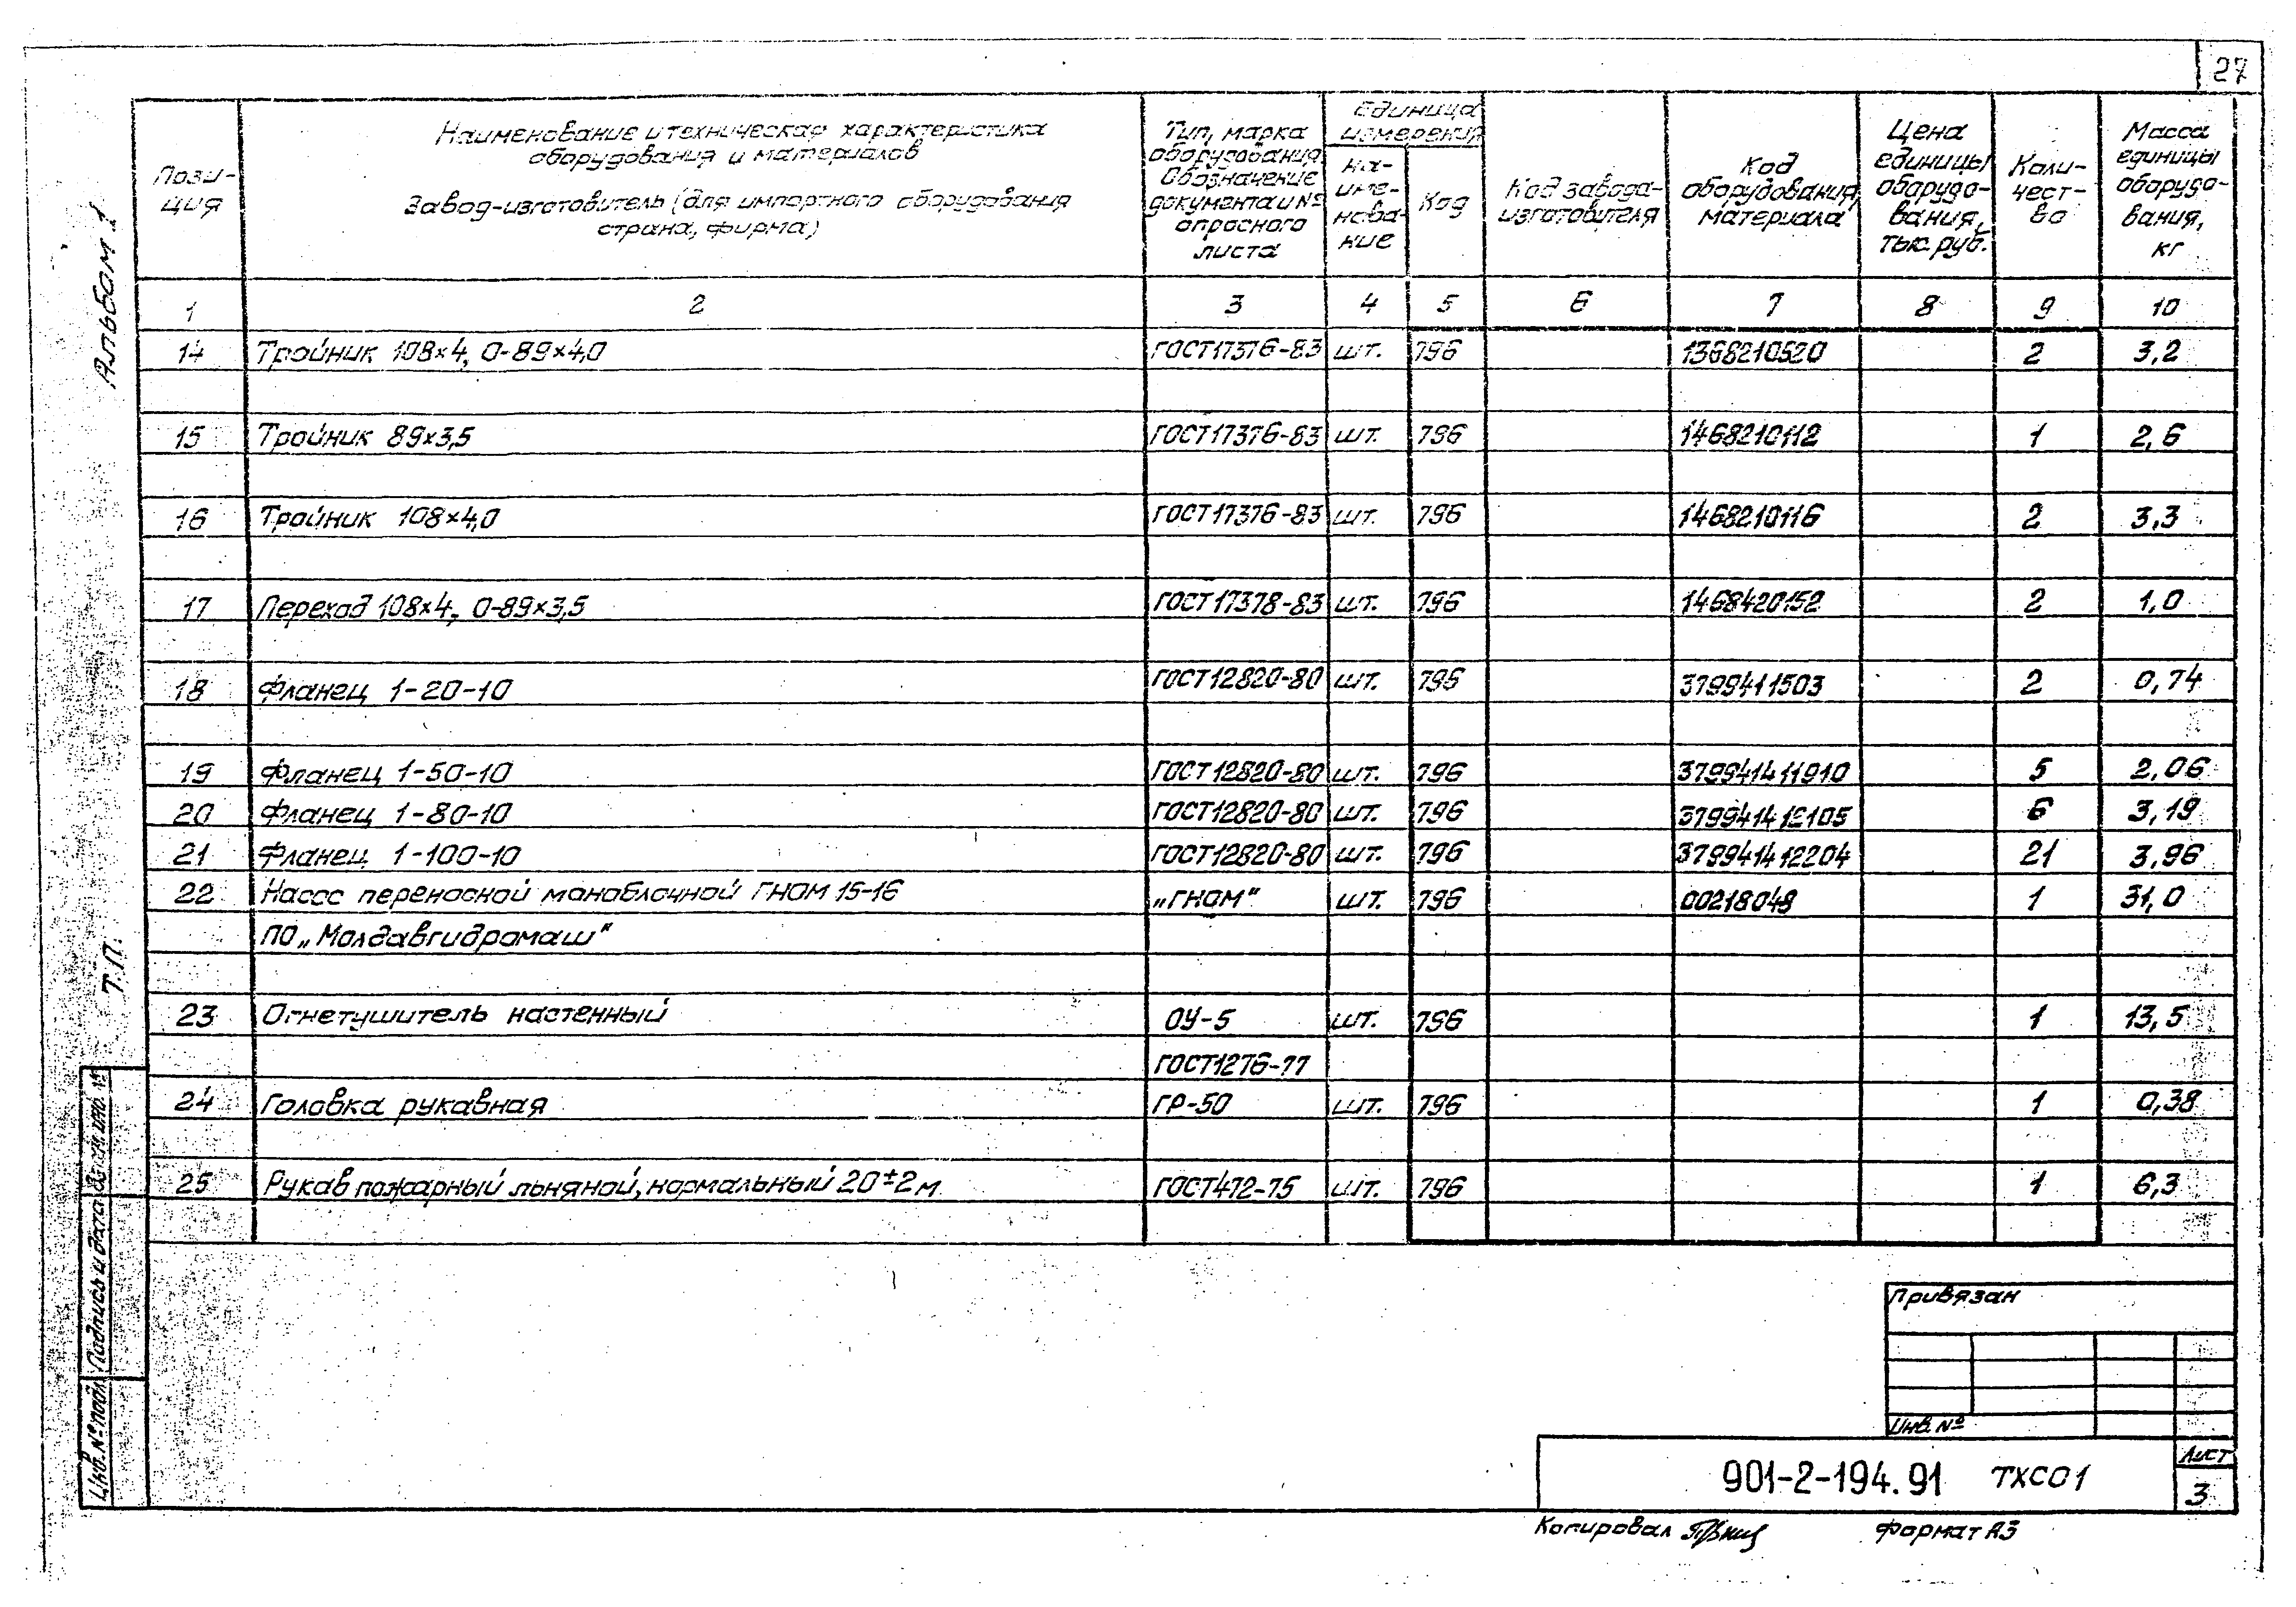 27
Пози-
ция
Наименование и техническая характеристика
оборудования и материалов
Завод-изготовитель (для импортного оборудования
страна, фирма)
Тип, марка
оборудования.
Обозначение
документа и №
опросного
листа
Единица
измерения
на-
име-
нова-
ние
Код
Код завода-
изготовителя
Код
оборудования,
материала
Цена
единицы
оборудо-
вания,
тыс. руб.
Коли-
чест-
во
Масса
единицы
оборудо-
вания,
кг
1 2 3 4 5 6 7 8 9 10
14 Тройник 108×4,0-89×4,0 ГОСТ17376-83 шт. 796 1368210520 2 3,2
15 Тройник 89×3,5 ГОСТ17376-83 шт. 796 1468210112 1 2,6
16 Тройник 108×4,0 ГОСТ17376-83 шт. 796 1468210116 2 3,3
17 Переход 108×4,0-89×3,5 ГОСТ17378-83 шт. 796 1468420152 2 1,0
18 Фланец 1-20-10 ГОСТ12820-80 шт. 796 3799411503 2 0,74
19 Фланец 1-50-10 ГОСТ12820-80 шт. 796 379941411910 5 2,06
20 Фланец 1-80-10 ГОСТ12820-80 шт. 796 379941412105 6 3,19
21 Фланец 1-100-10 ГОСТ12820-80 шт. 796 379941412204 21 3,96
22 Насос переносной моноблочной ГНОМ 15-16 „ГНОМ" шт. 796 00218049 1 31,0
ПО „Молдавгидромаш"
23 Огнетушитель настенный ОУ-5 шт. 796 1 13,5
ГОСТ1276-77
24 Головка рукавная ГР-50 шт. 796 1 0,38
25 Рукав пожарный льняной, нормальный 20±2м ГОСТ472-75 шт. 796 1 6,3
Альбом 1
Т.П.
Подпись и дата
Инв. № подл
Привязан
Инв. №
901-2-194.91 ТХСО1
Лист
3
Копировал
Формат А3